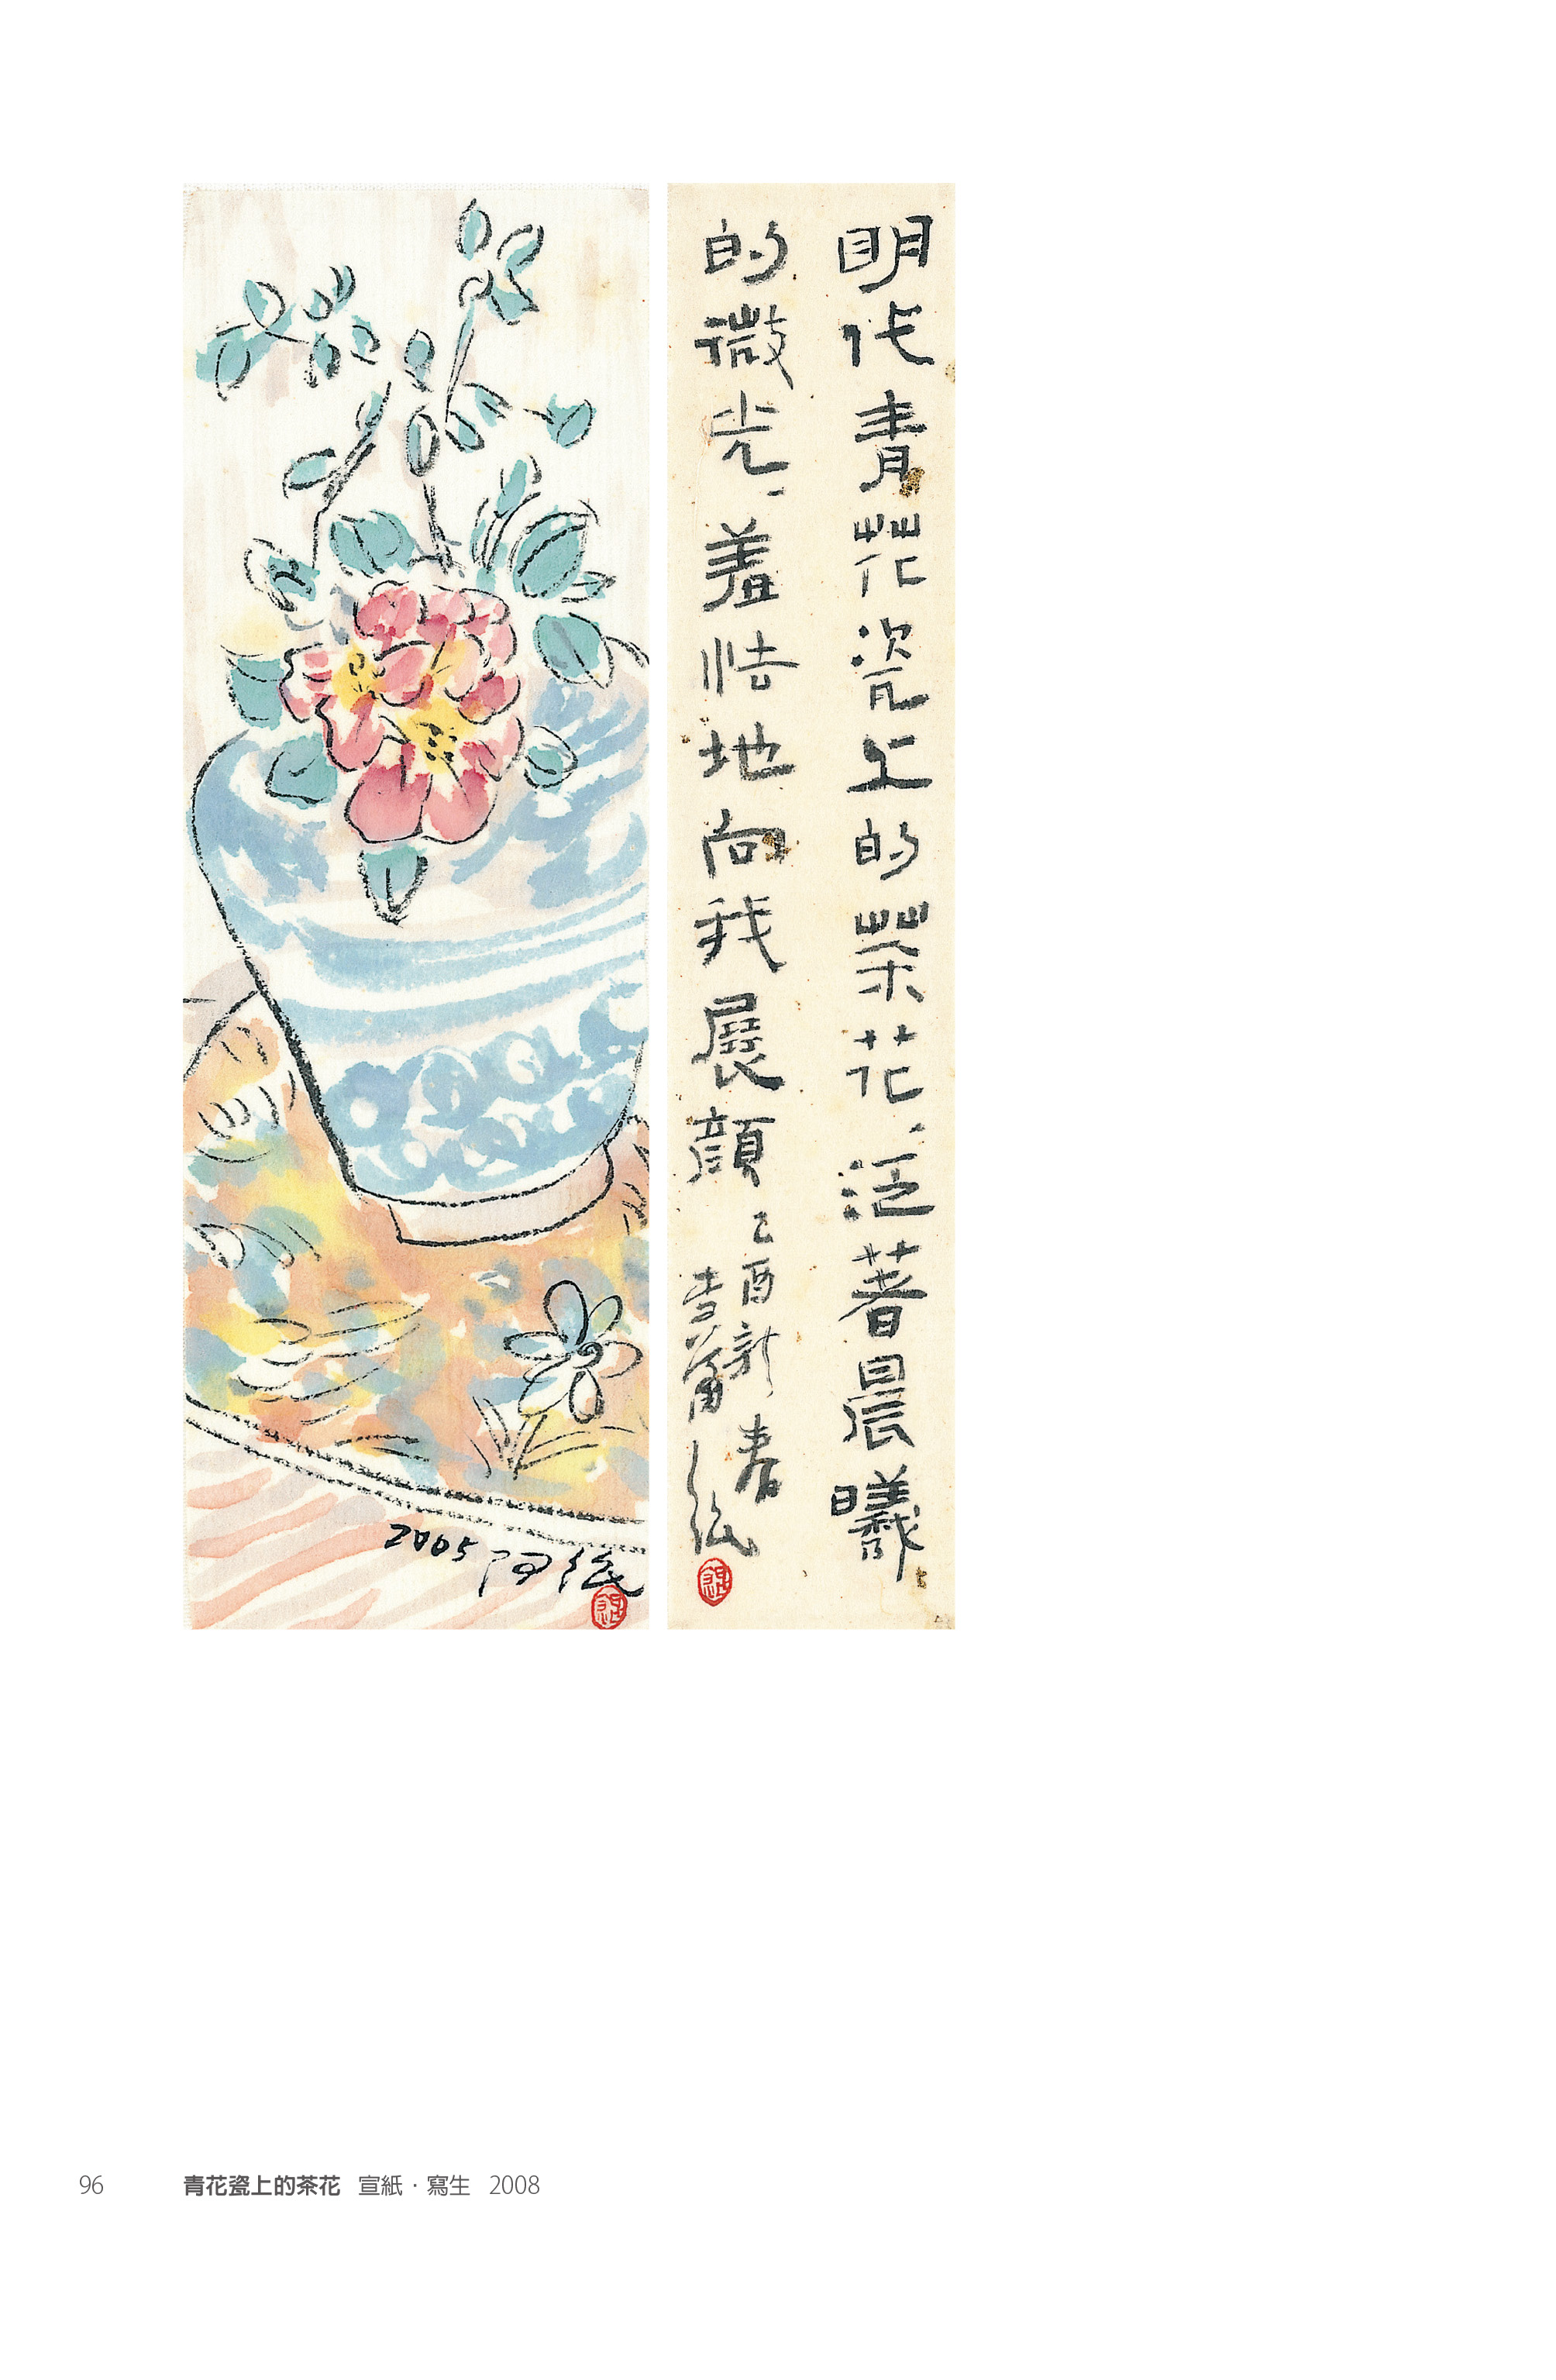 明代青花瓷上的茶花、泛著晨曦
的微光、羞怯地向我展顏
乙酉新春
李蕭
2005阿
96
青花瓷上的茶花 宣紙・寫生 2008